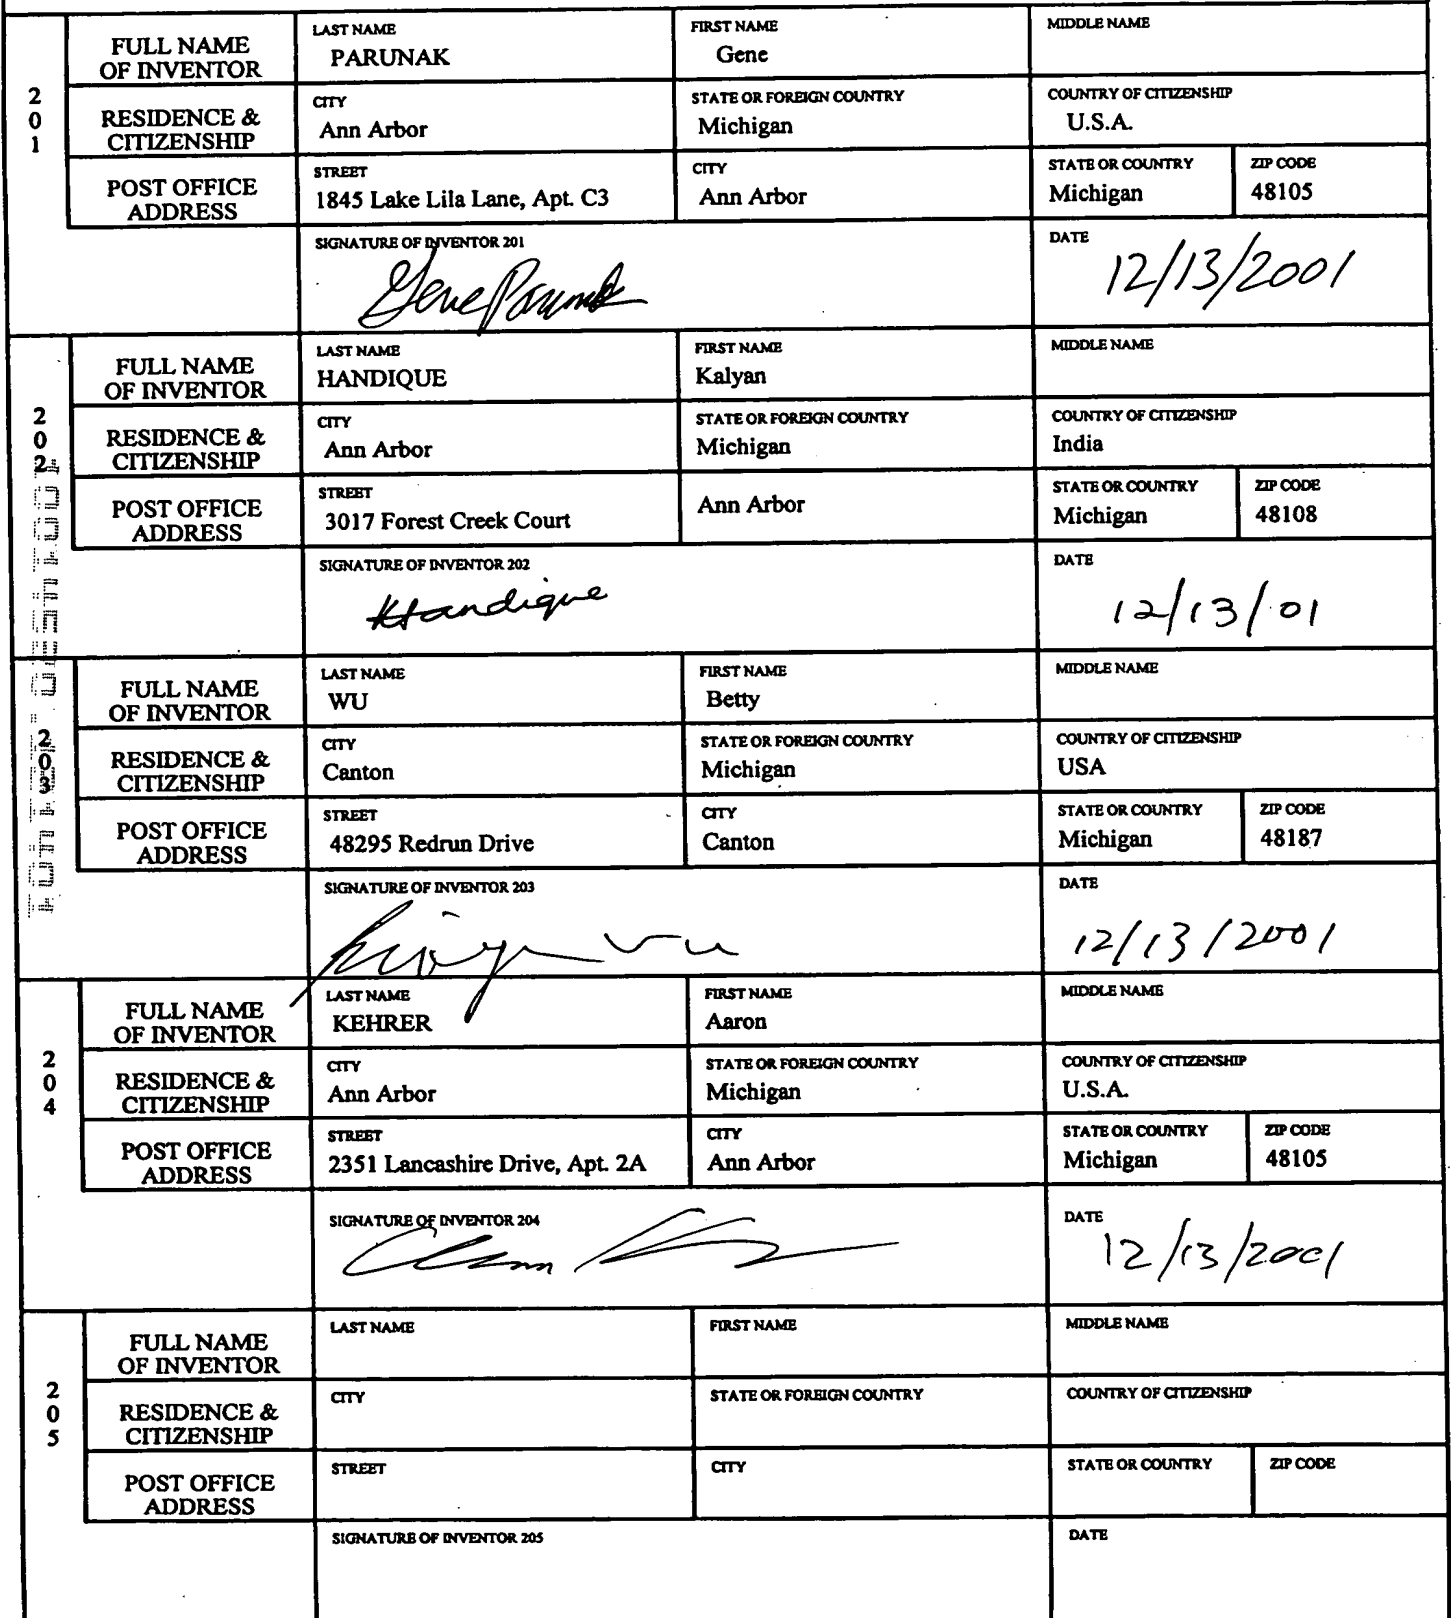 201
FULL NAME OF INVENTOR
LAST NAME
PARUNAK
FIRST NAME
Gene
MIDDLE NAME
RESIDENCE & CITIZENSHIP
CITY
Ann Arbor
STATE OR FOREIGN COUNTRY
Michigan
COUNTRY OF CITIZENSHIP
U.S.A.
POST OFFICE ADDRESS
STREET
1845 Lake Lila Lane, Apt. C3
CITY
Ann Arbor
STATE OR COUNTRY
Michigan
ZIP CODE
48105
SIGNATURE OF INVENTOR 201
Gene Parunak
DATE
12/13/2001
202
FULL NAME OF INVENTOR
LAST NAME
HANDIQUE
FIRST NAME
Kalyan
MIDDLE NAME
RESIDENCE & CITIZENSHIP
CITY
Ann Arbor
STATE OR FOREIGN COUNTRY
Michigan
COUNTRY OF CITIZENSHIP
India
POST OFFICE ADDRESS
STREET
3017 Forest Creek Court
Ann Arbor
STATE OR COUNTRY
Michigan
ZIP CODE
48108
SIGNATURE OF INVENTOR 202
KHandique
DATE
12/13/01
203
FULL NAME OF INVENTOR
LAST NAME
WU
FIRST NAME
Betty
MIDDLE NAME
RESIDENCE & CITIZENSHIP
CITY
Canton
STATE OR FOREIGN COUNTRY
Michigan
COUNTRY OF CITIZENSHIP
USA
POST OFFICE ADDRESS
STREET
48295 Redrun Drive
CITY
Canton
STATE OR COUNTRY
Michigan
ZIP CODE
48187
SIGNATURE OF INVENTOR 203
DATE
12/13/2001
204
FULL NAME OF INVENTOR
LAST NAME
KEHRER
FIRST NAME
Aaron
MIDDLE NAME
RESIDENCE & CITIZENSHIP
CITY
Ann Arbor
STATE OR FOREIGN COUNTRY
Michigan
COUNTRY OF CITIZENSHIP
U.S.A.
POST OFFICE ADDRESS
STREET
2351 Lancashire Drive, Apt. 2A
CITY
Ann Arbor
STATE OR COUNTRY
Michigan
ZIP CODE
48105
SIGNATURE OF INVENTOR 204
DATE
12/13/2001
205
FULL NAME OF INVENTOR
LAST NAME
FIRST NAME
MIDDLE NAME
RESIDENCE & CITIZENSHIP
CITY
STATE OR FOREIGN COUNTRY
COUNTRY OF CITIZENSHIP
POST OFFICE ADDRESS
STREET
CITY
STATE OR COUNTRY
ZIP CODE
SIGNATURE OF INVENTOR 205
DATE